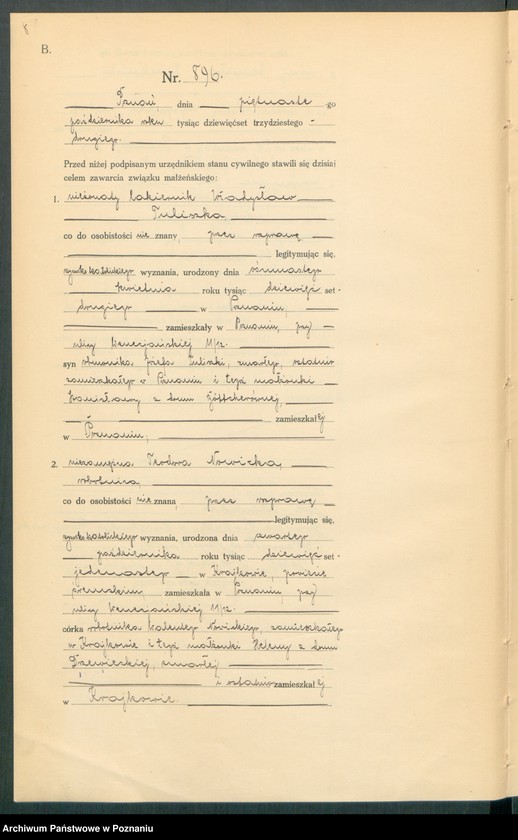 8
B.
Nr. 896.
Poznań, dnia piętnaste go
października roku tysiąc dziewięćset trzydziestego
drugiego.
Przed niżej podpisanym urzędnikiem stanu cywilnego stawili się dzisiaj
celem zawarcia związku małżeńskiego:
1. nieżonaty lakiernik Władysław
Tuliszka,
co do osobistości nie znany, przez
legitymując się,
rzymskokatolickiego wyznania, urodzony dnia ósmnastego
kwietnia roku tysiąc dziewięć set
drugiego w Poznaniu,
zamieszkały w Poznaniu, przy
ulicy Wenecjańskiej 11/12.
syn robotnika Józefa Tuliszki, zmarłego, ostatnio
zamieszkałego w Poznaniu i tegoż małżonki
z domu
zamieszkałej
w Poznaniu,
2. niezamężna Teodora Nowicka,
robotnica,
co do osobistości nie znana, przez
legitymując się,
rzymskokatolickiego wyznania, urodzona dnia czwartego
października roku tysiąc dziewięć set
jedenastego w Krajkowie, powiecie
zamieszkała w Poznaniu, przy
ulicy Wenecjańskiej 11/12.
córka robotnika Walentego Nowickiego, zamieszkałego
w Krajkowie i tegoż małżonki Heleny z domu
zmarłej
i ostatnio zamieszkałej
w Krajkowie.
Archiwum Państwowe w Poznaniu